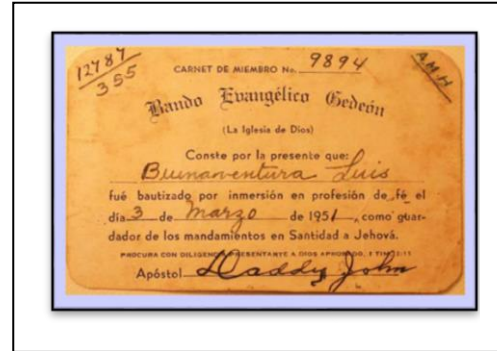 12787
355
AMH
CARNET DE MIEMBRO No. 9894
Bando Evangélico Gedeón
(La Iglesia de Dios)
Conste por la presente que:
Buenaventura Luis
fué bautizado por inmersión en profesión de fé el
día 3 de Marzo de 1951, como guar-
dador de los mandamientos en Santidad a Jehová.
PROCURA CON DILIGENCIA PRESENTARTE A DIOS APROBADO, 2 TIM. 2:15
Apóstol Daddy John